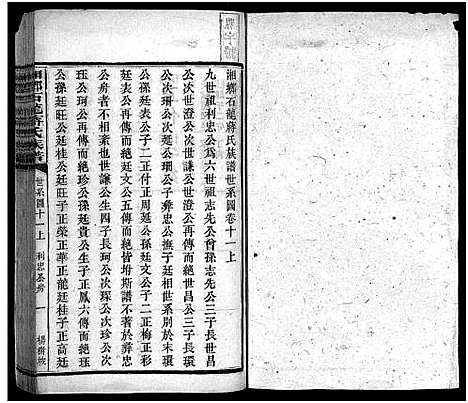 湘鄉石龍蔣氏族譜世系圖卷十一上
九世祖利忠公爲六世祖志先公曾孫志先公三子長世昌
公次世澄公次世謙公一再傳而絕世昌公三子長瓌
公次珊公次廷公珊公子彝忠公撫子廷相世系附于末瓌
公孫廷文公子二正付正周延公孫廷文公子二正梅正彩
廷表公再傳而絕廷文公五傳而絕皆坿斯譜不著
公房者不相紊也世謙公生四子長珂公次珍公次
珏公珂公再傳而絕珍公孫廷貴公生子正鳳六傳而絕珏
公孫廷旺公廷桂公廷旺子正榮正華正龍廷桂子正高廷
湘鄉石龍蔣氏族譜
世系圖十一上
利忠公房
一
楊樹坡